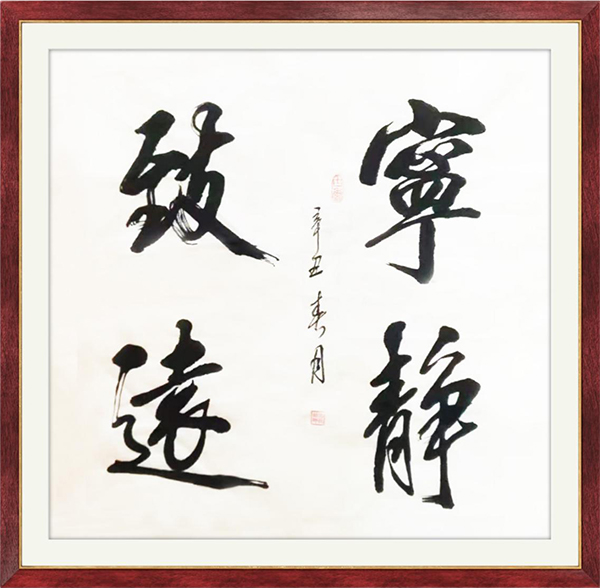 寧靜
致遠
辛丑春月